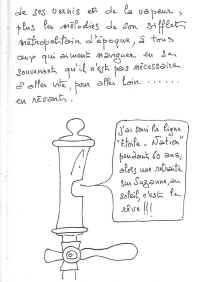 de ses vernis et de la vapeur,
plus les mélodies de son sifflet
métropolitain d'époque, à tous
ceux qui aiment naviguer en se
souvenant qu'il n'est pas nécessaire
d'aller vite, pour aller loin .......
en rêvant.
J'ai suivi la ligne
"Etoile - Nation"
pendant 60 ans,
alors une retraite
sur Suzanne, au
soleil, c'est le
rêve !!!